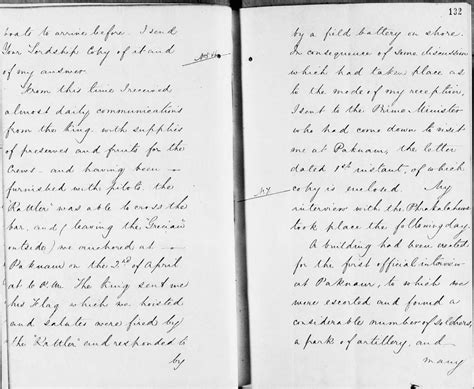 boats to arrive before. I send
Your Lordship Copy of it and
of my answer.
From this time I received
almost daily communications
from the King with supplies
of preserves and fruits for the
Crews – and having been
furnished with pilots the
"Rattler" was able to cross the
bar, and (leaving the "Grecian"
outside) we anchored at
Paknam on the 2nd of April
at 6 P.M. The King sent me
his Flag which we hoisted
and salutes were fired by
the "Rattler" and responded to
by
132
by a field battery on shore.
In consequence of some discussion
which had taken place as
to the mode of my reception,
I sent to the Prime Minister
who had come down to visit
me at Paknam, the letter
dated 1st instant, of which
copy is enclosed. My
interview with the Phrakalahome
took place the following day.
A building had been erected
for the first official interview
at Paknam, to which we
were escorted and found a
considerable number of soldiers,
a park of artillery, and
many